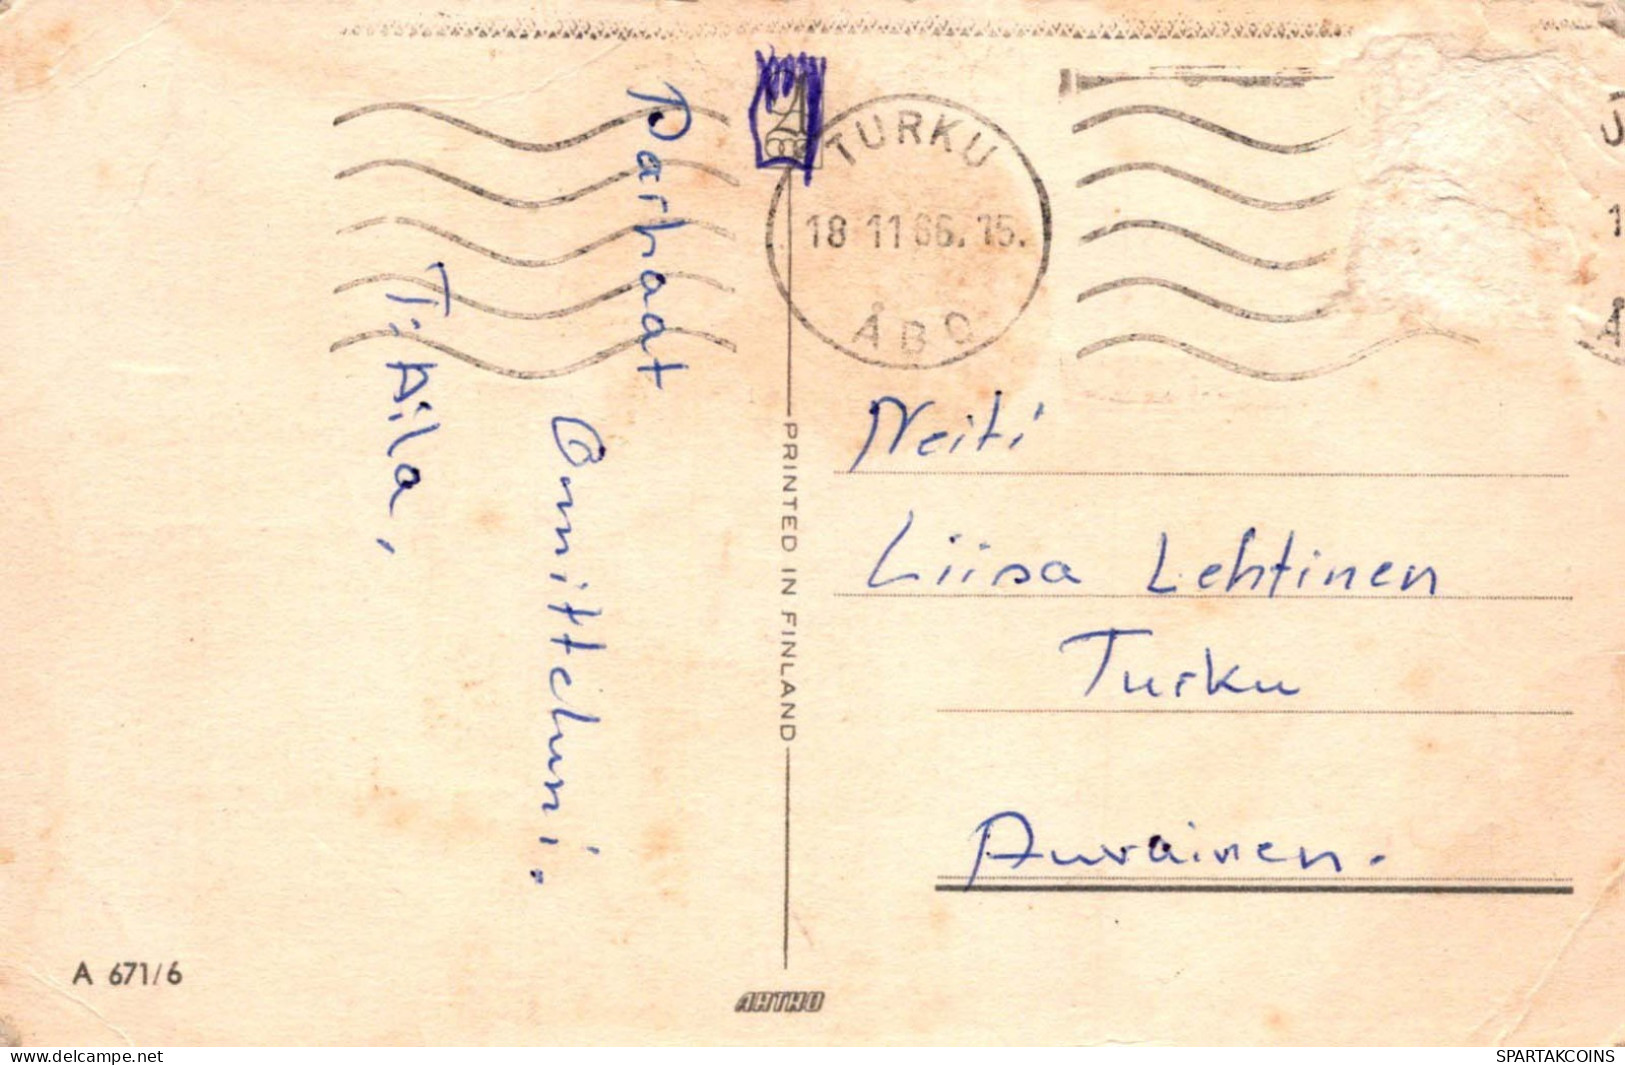 TURKU
18 11 66.15.
ÅBO
Parhaat
Onnitteluni.
T. Aila,
PRINTED IN FINLAND
Neiti
Liisa Lehtinen
Turku
Auvainen.
A 671/6
delcampe.net
SPARTAKCOINS